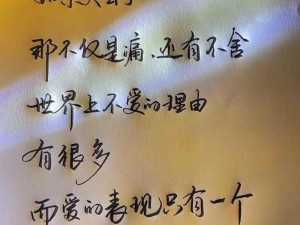 那不仅是痛.还有不舍
世界上不爱的理由
有很多
而爱的表现只有一个